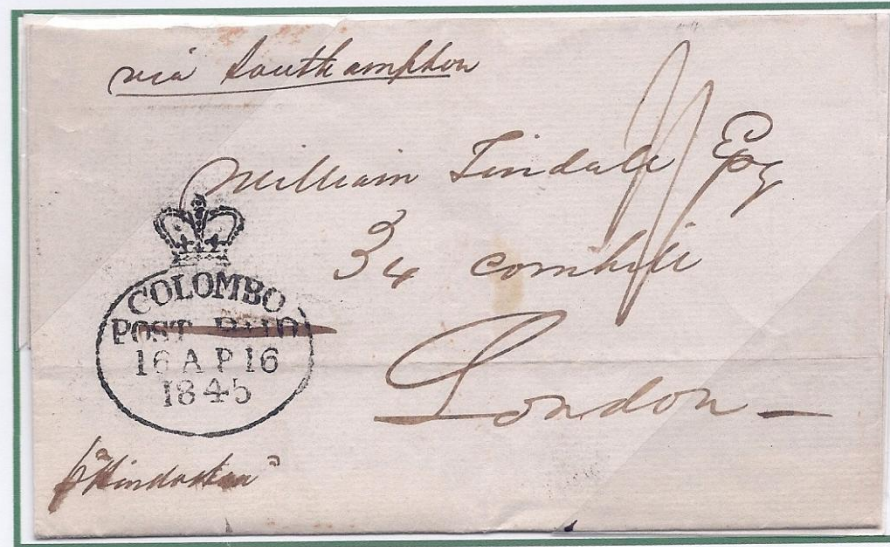 via Southampton
William Tindall Esq
34 Cornhill
London
COLOMBO
POST PAID
16 AP 16
1845
p "Hindostan"